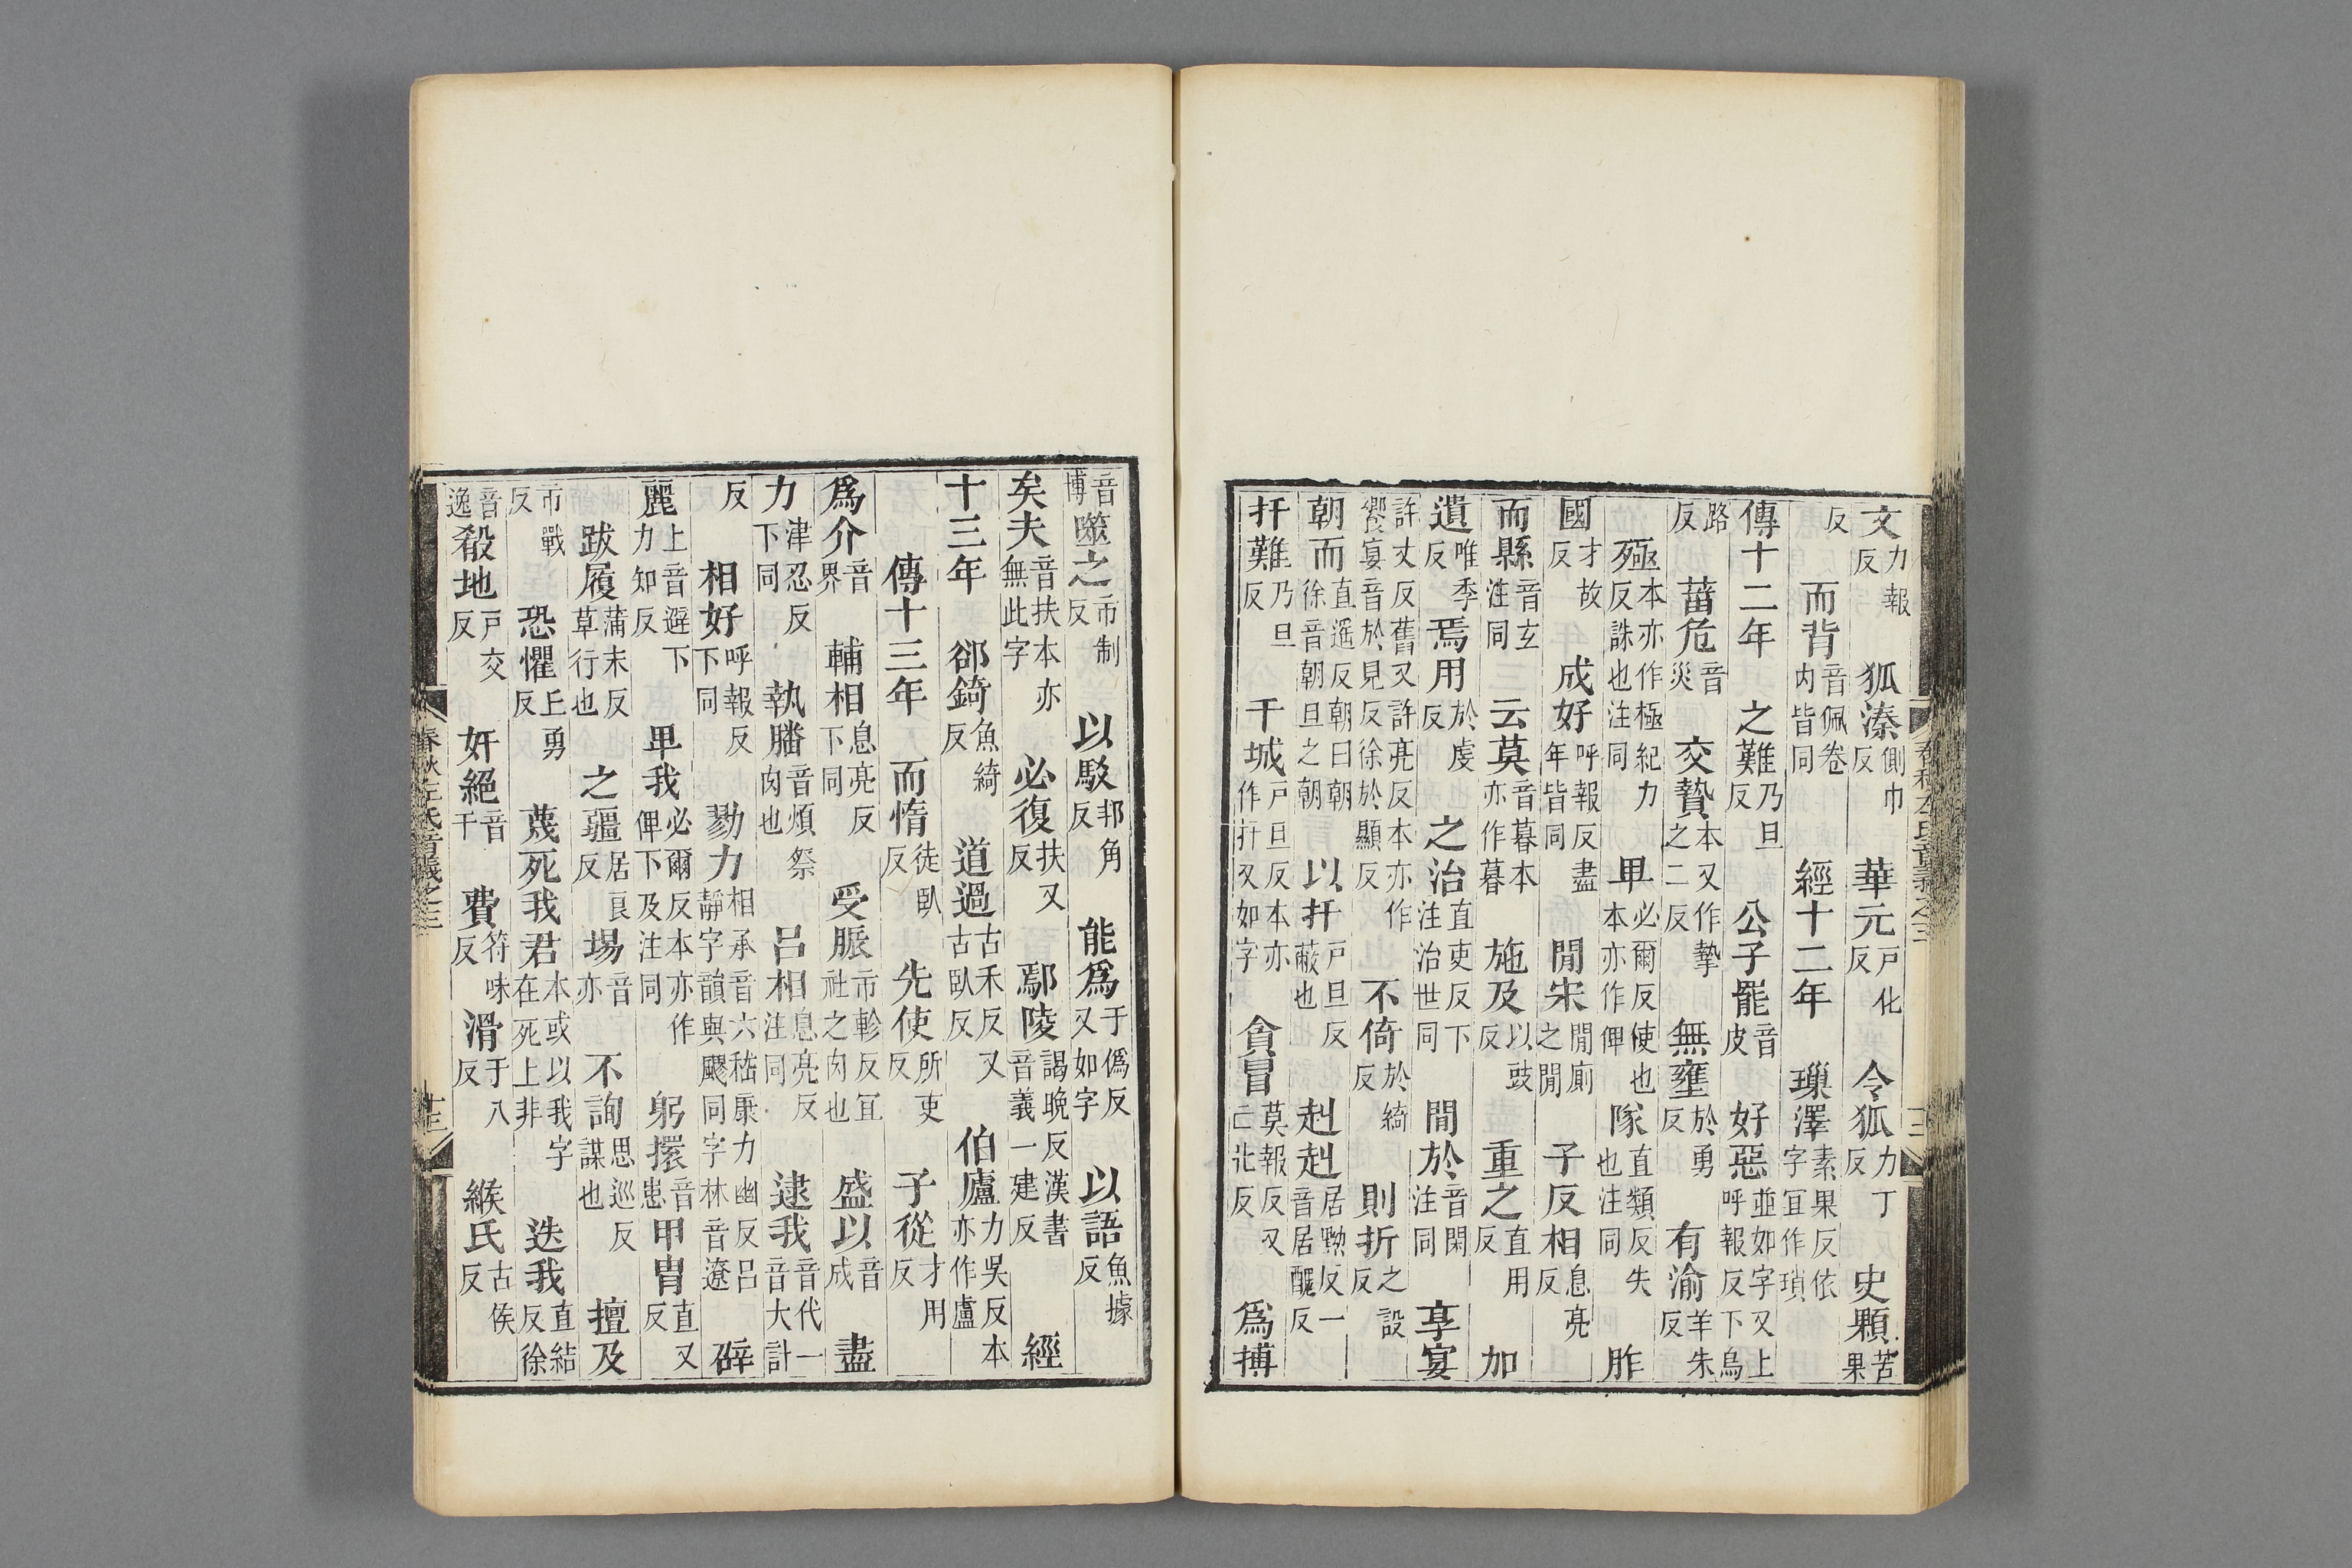 文力報反 狐溱側巾反 華元戶化反 令狐力丁反 史顆苦果
反 而背音佩卷内皆同 經十二年 璅澤素果反依字宜作瑣
傳十二年 之難乃旦反 公子罷音皮 好惡並如字又上呼報反下烏
路反 菑危音災 交贄本又作摯之二反 無壅於勇反 有渝羊朱反
殛本亦作極紀力反誅也注同 卑必爾反使也本亦作俾 隊直類反失也注同 胙
國才故反 成好呼報反盡年皆同 閒宋閒廁之閒 子反相息亮反
而縣音玄注同 云莫音暮本亦作暮 施及以豉反 重之直用反 加
遺唯季反 焉用於虔反 之治直吏反下注治世同 間於音閑注同 享宴
許丈反舊又許亮反本亦作饗宴音於見反徐於顯反 不倚於綺反 則折之設反
朝而直遥反朝曰朝徐音朝旦之朝 以扞戶旦反蔽也 赳赳居黝反一音居醜反
扞難乃旦反 干城戶旦反本亦作扞又如字 貪冒莫報反又亡北反 爲搏
春秋左氏音義之三
音博 噬之市制反 以駁邦角反 能爲于僞反又如字 以語魚據反
矣夫音扶本亦無此字 必復扶又反 鄢陵謁晚反漢書音義一建反 經
十三年 郤錡魚綺反 道過古禾反又古臥反 伯廬力吳反本亦作盧
傳十三年 而惰徒臥反 先使所吏反 子從才用反
爲介音界 輔相息亮反下同 受脤市軫反宜社之肉也 盛以音成 盡
力津忍反下同 執膰音煩祭肉也 呂相息亮反注同 逮我音代一音大計
反 相好呼報反下同 勠力相承音六嵇康力幽反呂靜字韻與飂同字林音遼 辟
麗上音避下力知反 卑我必爾反本亦作俾下及注同 躬擐音患 甲胄直又反
跋履蒲末反草行也 之疆居良反 埸音亦 不詢思巡反謀也 擅及
市戰反 恐懼上勇反 蔑死我君本或以我字在死上非 迭我直結反徐
音逸 殽地戶交反 奸絕音干 費符味反 滑于八反 緱氏古侯反
春秋左氏音義之三 十三